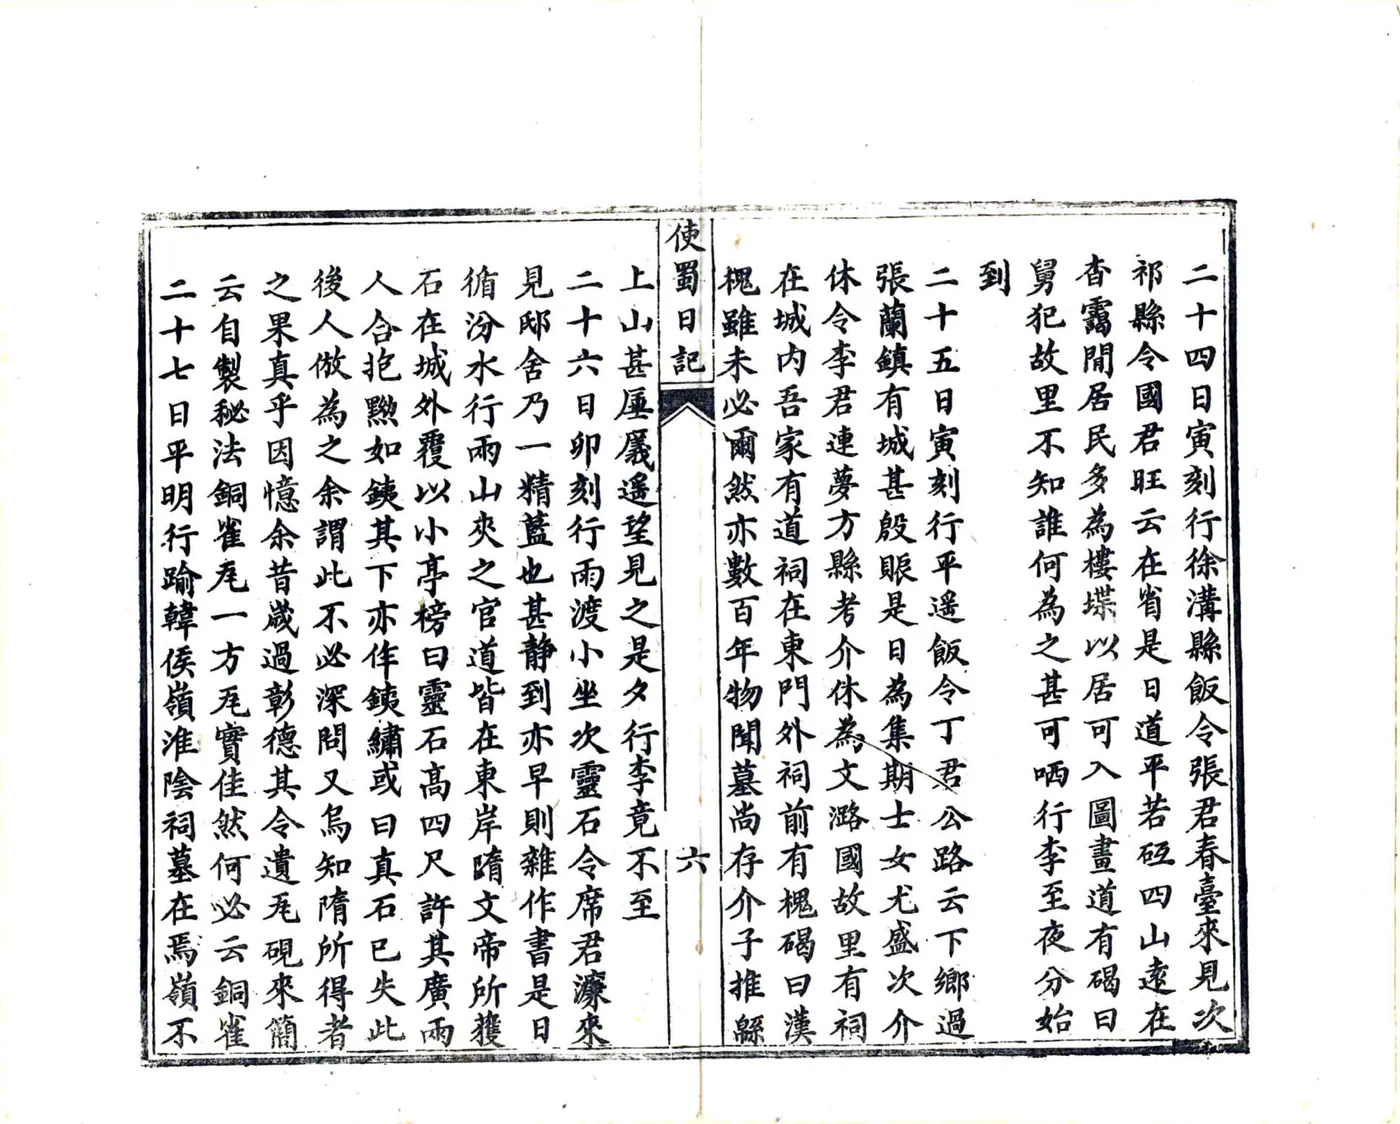 二十四日寅刻行徐溝縣飯令張君春臺來見次
祁縣令國君旺云在省是日道平若砥四山遠在
杳靄間居民多為樓堞以居可入圖畫道有碣曰
舅犯故里不知誰何為之甚可哂行李至夜分始
到
二十五日寅刻行平遥飯令丁君公路云下鄉過
張蘭鎮有城甚殷賑是日為集期士女尤盛次介
休令李君連夢方縣考介休為文潞國故里有祠
在城內吾家有道祠在東門外祠前有槐碣曰漢
槐雖未必爾然亦數百年物聞墓尚存介子推緜
上山甚厜㕒遥望見之是夕行李竟不至
二十六日卯刻行雨渡小坐次靈石令席君濂來
見邸舍乃一精藍也甚静到亦早則雜作書是日
循汾水行兩山夾之官道皆在東岸隋文帝所獲
石在城外覆以小亭榜曰靈石高四尺許其廣兩
人合抱黝如銕其下亦作銕繡或曰真石已失此
後人倣為之余謂此不必深問又烏知隋所得者
之果真乎因憶余昔歲過彰德其令遺瓦硯來簡
云自製秘法銅雀瓦一方瓦實佳然何必云銅雀
二十七日平明行踰韓侯嶺淮陰祠墓在焉嶺不
使蜀日記
六